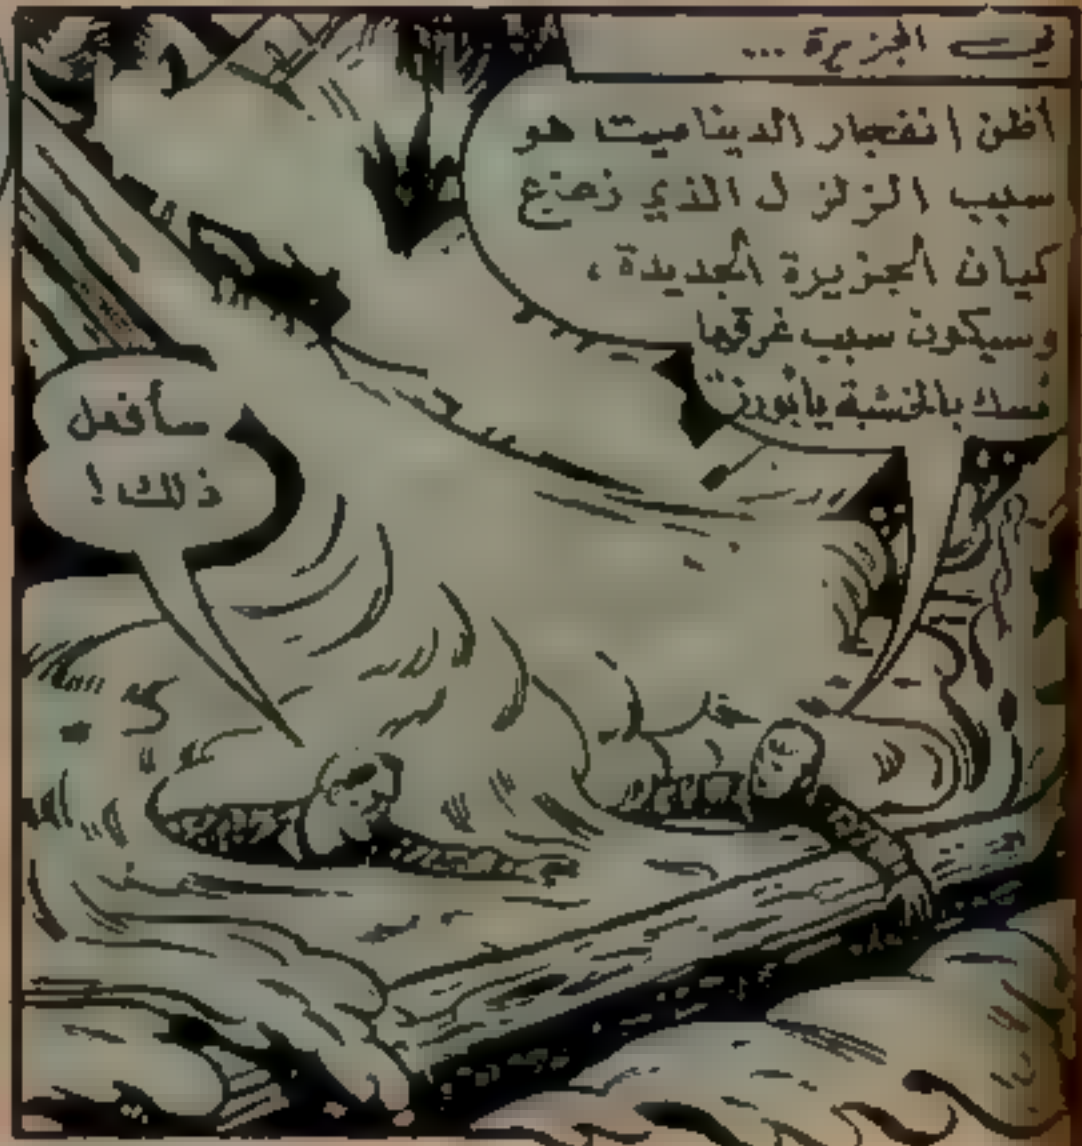 في الجزيرة ...
أظن انفجار الديناميت هو
سبب الزلزال الذي زعزع
كيان الجزيرة الجديدة ،
وسيكون سبب غرقها
تمسك بالخشبة يا بورن
سأفعل
ذلك !